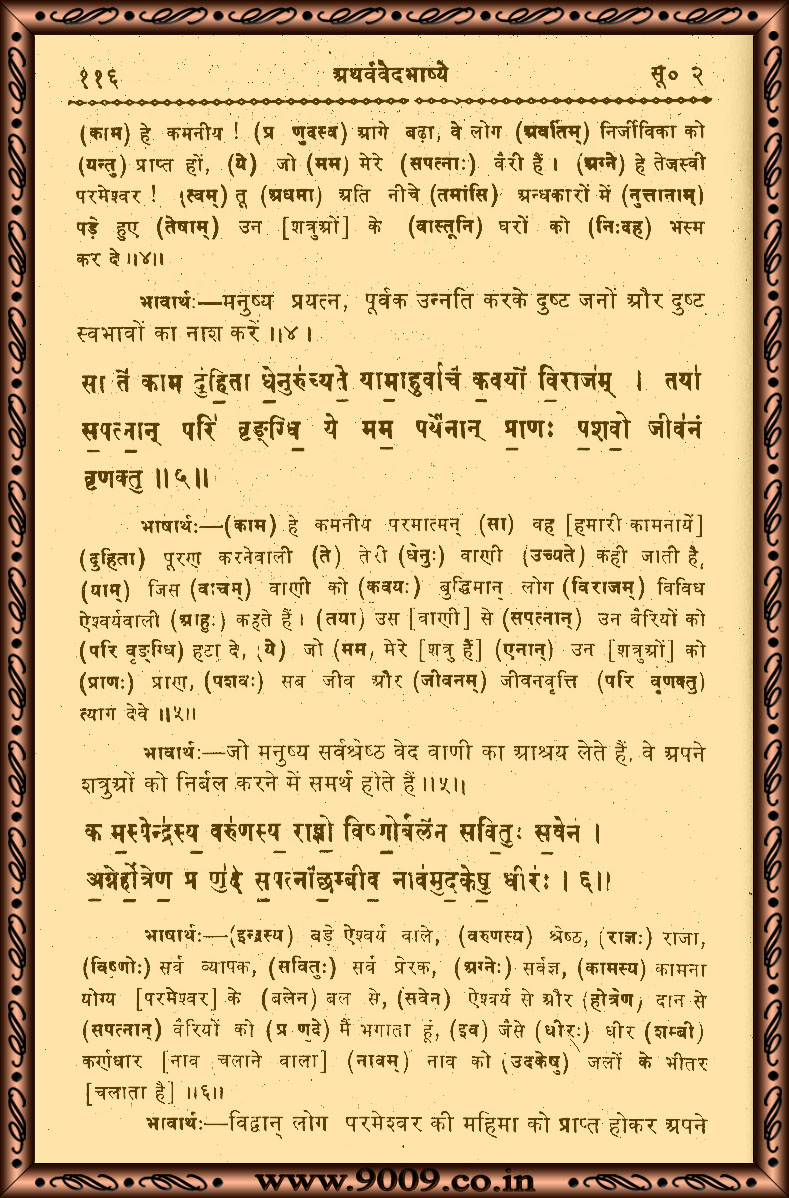 ११६ अथर्ववेदभाष्ये सू० २
(काम) हे कमनीय ! (प्र णुदस्व) आगे बढ़ा, वे लोग (अवर्तिम्) निर्जीविका को
(यन्तु) प्राप्त हों, (ये) जो (मम) मेरे (सपत्नाः) वैरी हैं । (अग्ने) हे तेजस्वी
परमेश्वर ! (त्वम्) तू (अधमा) अति नीचे (तमांसि) अन्धकारों में (नुत्तानाम्)
पड़े हुए (तेषाम्) उन [शत्रुओं] के (वास्तूनि) घरों को (निःदह) भस्म
कर दे ॥४॥
भावार्थः—मनुष्य प्रयत्न, पूर्वक उन्नति करके दुष्ट जनों और दुष्ट
स्वभावों का नाश करें ॥४ ।
सा ते॑ काम दुहि॒ता धे॒नुरु॑च्यते॒ यामा॒हुर्वाचं॑ क॒वयो॑ वि॒राज॑म् । तया॑
स॒पत्ना॒न् परि॑ वृङ्ग्धि॒ ये मम॒ पर्ये॑नान् प्रा॒णः प॒शवो॒ जीव॑नं
वृणक्तु॒ ॥५॥
भाषार्थः—(काम) हे कमनीय परमात्मन् (सा) वह [हमारी कामनायें]
(दुहिता) पूरण करनेवाली (ते) तेरी (धेनुः) वाणी (उच्यते) कही जाती है,
(याम्) जिस (वाचम्) वाणी को (कवयः) बुद्धिमान् लोग (विराजम्) विविध
ऐश्वर्यवाली (आहुः) कहते हैं । (तया) उस [वाणी] से (सपत्नान्) उन वैरियों को
(परि वृङ्ग्धि) हटा दे, (ये) जो (मम) मेरे [शत्रु हैं] (एनान्) उन [शत्रुओं] को
(प्राणः) प्राण, (पशवः) सब जीव और (जीवनम्) जीवनवृत्ति (परि वृणक्तु)
त्याग देवे ॥५॥
भावार्थः—जो मनुष्य सर्वश्रेष्ठ वेद वाणी का आश्रय लेते हैं, वे अपने
शत्रुओं को निर्बल करने में समर्थ होते हैं ॥५॥
काम॒स्येन्द्र॑स्य॒ वरु॑णस्य॒ राज्ञो॒ विष्णो॒र्बले॑न सवि॒तुः स॒वेन॑ ।
अ॒ग्नेर्हो॒त्रेण॒ प्र णु॑दे स॒पत्नां॑छ॒म्बीव॒ नाव॑मुद॒केषु॒ धीरः॑ । ६॥
भाषार्थः—(इन्द्रस्य) बड़े ऐश्वर्य वाले, (वरुणस्य) श्रेष्ठ, (राज्ञः) राजा,
(विष्णोः) सर्व व्यापक, (सवितुः) सर्व प्रेरक, (अग्नेः) सर्वज्ञ, (कामस्य) कामना
योग्य [परमेश्वर] के (बलेन) बल से, (सवेन) ऐश्वर्य से और (होत्रेण) दान से
(सपत्नान्) वैरियों को (प्र णुदे) मैं भगाता हूं, (इव) जैसे (धीरः) धीर (शम्बी)
कर्णधार [नाव चलाने वाला] (नावम्) नाव को (उदकेषु) जलों के भीतर
[चलाता है] ॥६॥
भावार्थः—विद्वान् लोग परमेश्वर की महिमा को प्राप्त होकर अपने
www.9009.co.in